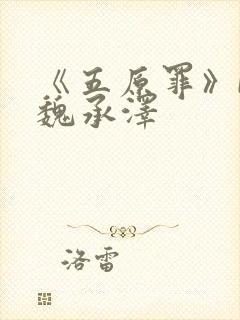 《五原罪》
魏承澤
洛雷